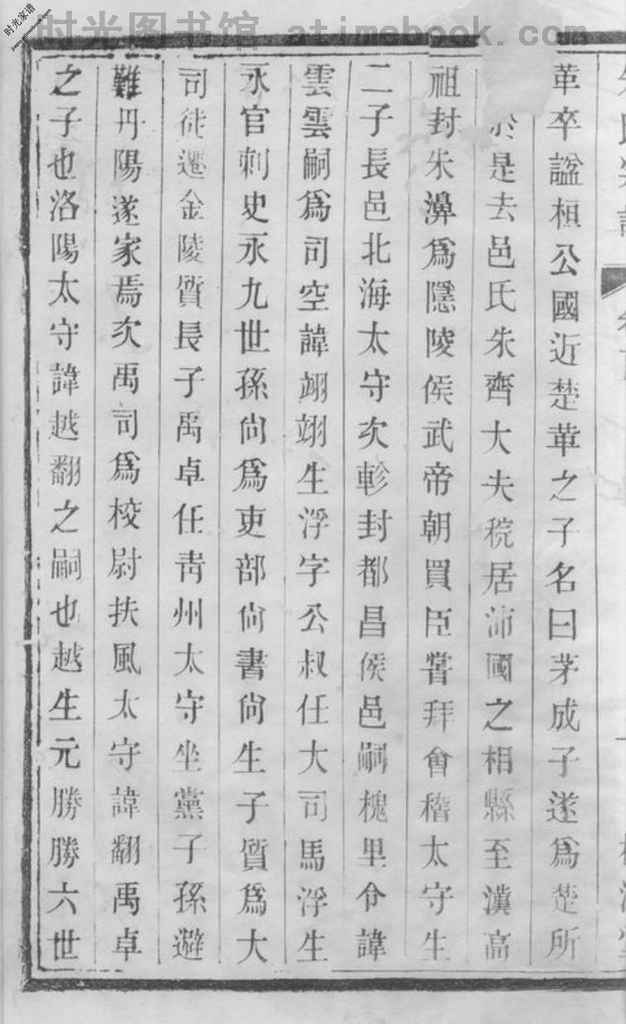 时光图书馆 www.atimebook.com
时光家谱
革卒諡桓公國近楚革之子名曰茅成子遂爲楚所
於是去邑氏朱齊大夫稅居沛國之相縣至漢高
祖封朱濞爲隱陵侯武帝朝買臣嘗拜會稽太守生
二子長邑北海太守次軫封都昌侯邑嗣槐里令諱
雲雲嗣爲司空諱翊翊生浮字公叔任大司馬浮生
永官刺史永九世孫尙爲吏部尙書尙生子質爲大
司徒遷金陵質長子禹卓任青州太守坐黨子孫避
難丹陽遂家焉次禹司爲校尉扶風太守諱翻禹卓
之子也洛陽太守諱越翻之嗣也越生元勝勝六世